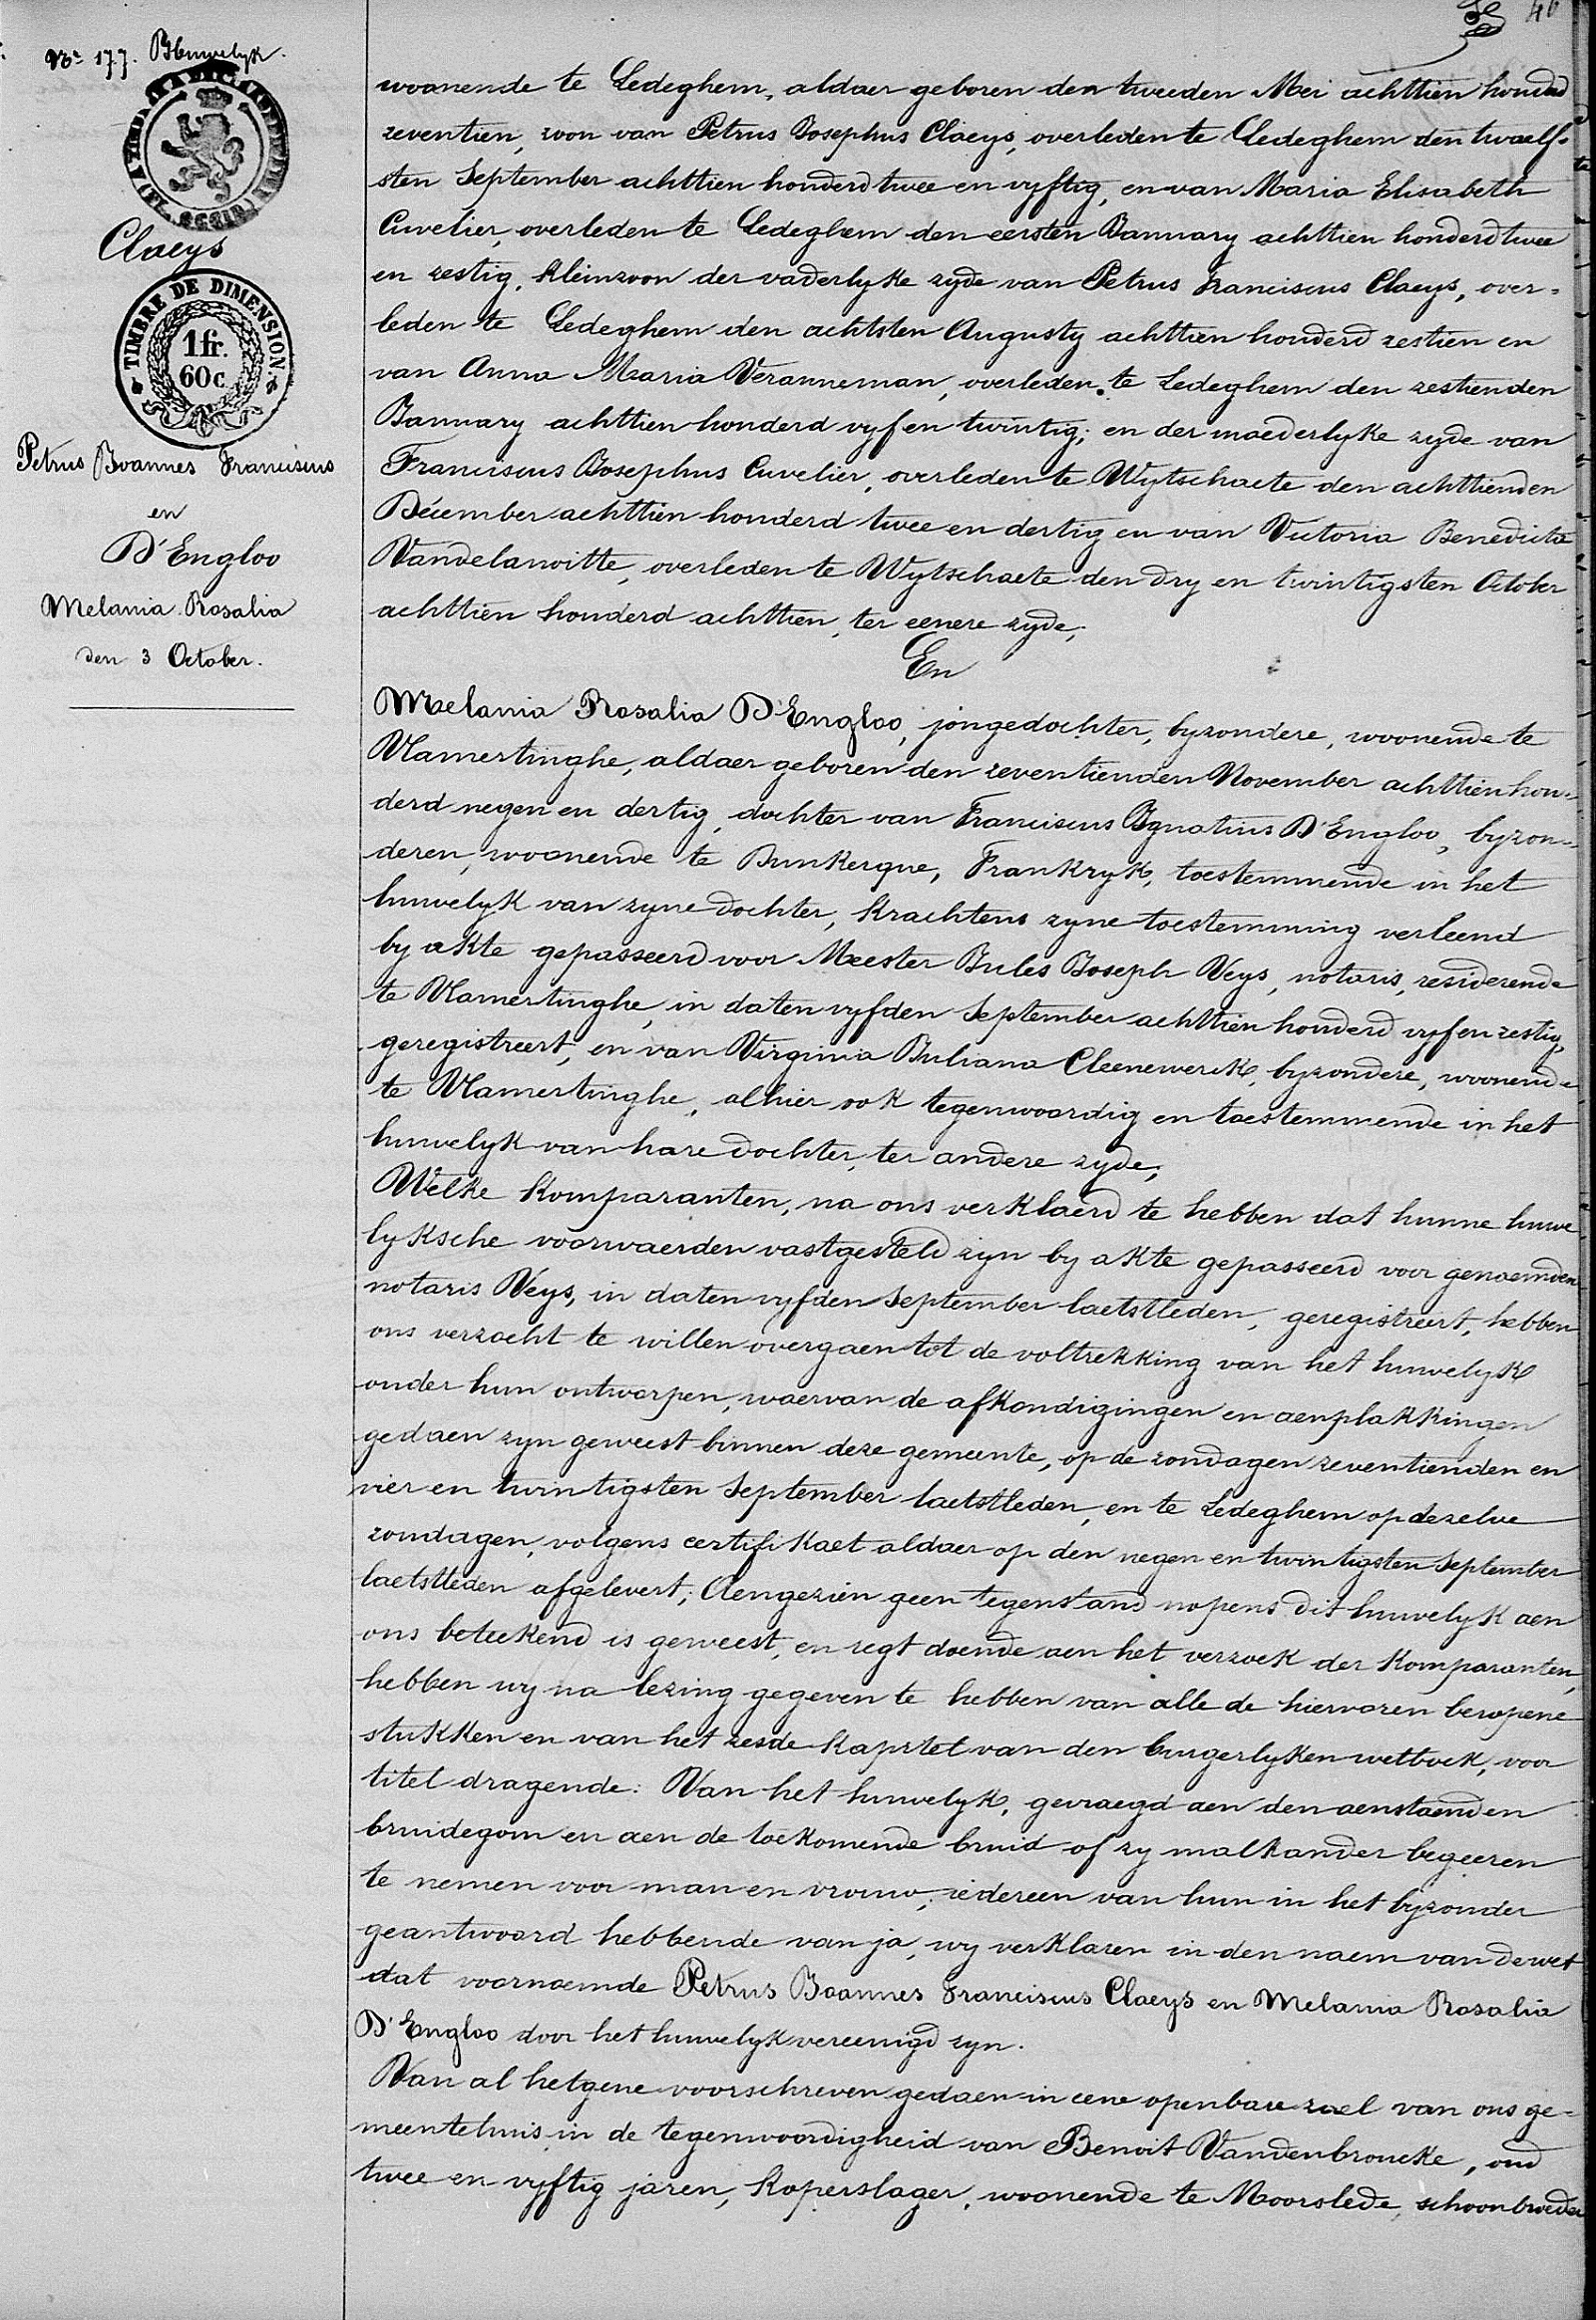 46
No 177. Huwelyk.
Claeys
TIMBRE DE DIMENSION
1 fr.
60 c
Petrus Joannes Franciscus
en
D'Engloo
Melania Rosalia
den 3 October.
woonende te Ledeghem, aldaer geboren den tweeden Mei achttien honderd
zeventien, zoon van Petrus Josephus Claeys, overleden te Ledeghem den twaelf-
sten September achttien honderd twee en vyftig, en van Maria Elisabeth
Cuvelier, overleden te Ledeghem den eersten January achttien honderd twee
en zestig, kleinzoon der vaderlyke zyde van Petrus Franciscus Claeys, over-
leden te Ledeghem den achtsten Augusty achttien honderd zestien en
van Anna Maria Veranneman, overleden te Ledeghem den zestienden
January achttien honderd vyf en twintig; en der moederlyke zyde van
Franciscus Josephus Cuvelier, overleden te Wytschaete den achttienden
December achttien honderd twee en dertig en van Victoria Benedicta
Vandelanoitte, overleden te Wytschaete den dry en twintigsten October
achttien honderd achttien, ter eenere zyde,
En
Melania Rosalia D'Engloo, jongedochter, byzondere, woonende te
Vlamertinghe, aldaer geboren den zeventienden November achttien hon-
derd negen en dertig, dochter van Franciscus Ignatius D'Engloo, byzon-
deren, woonende te Dunkerque, Frankryk, toestemmende in het
huwelyk van zyne dochter, krachtens zyne toestemming verleend
by akte gepasseerd voor Meester Jules Joseph Veys, notaris, residerende
te Vlamertinghe, in daten vyfden September achttien honderd vyf en zestig,
geregistreert, en van Virginia Juliana Cleenewerck, byzondere, woonende
te Vlamertinghe, alhier ook tegenwoordig en toestemmende in het
huwelyk van hare dochter, ter andere zyde;
Welke komparanten, na ons verklaerd te hebben dat hunne huwe
lyksche voorwaerden vastgesteld zyn by akte gepasseerd voor genoemden
notaris Veys, in daten vyfden September laetstleden, geregistreert, hebben
ons verzocht te willen overgaen tot de voltrekking van het huwelyk
onder hun ontworpen, waervan de afkondigingen en aenplakkingen
gedaen zyn geweest binnen deze gemeente, op de zondagen zeventienden en
vier en twintigsten September laetstleden, en te Ledeghem op dezelve
zondagen, volgens certifikaet aldaer op den negen en twintigsten September
laetstleden afgelevert; Aengezien geen tegenstand nopens dit huwelyk aen
ons beteekend is geweest, en regt doende aen het verzoek der komparanten,
hebben wy na lezing gegeven te hebben van alle de hiervoren beropene
stukken en van het zesde kapittel van den burgerlyken wetboek, voor
titel dragende: Van het huwelyk, gevraegd aen den aenstaenden
bruidegom en aen de toekomende bruid of zy malkander begeeren
te nemen voor man en vrouw; iedereen van hun in het byzonder
geantwoord hebbende van ja, wy verklaren in den naem van de wet
dat voornoemde Petrus Joannes Franciscus Claeys en Melania Rosalia
D'Engloo door het huwelyk vereenigd zyn.
Van al hetgene voorschreven gedaen in eene openbare zael van ons ge-
meentehuis in de tegenwoordigheid van Benoit Vandenbroucke, oud
twee en vyftig jaren, koperslager, woonende te Moorslede, schoonbroeder